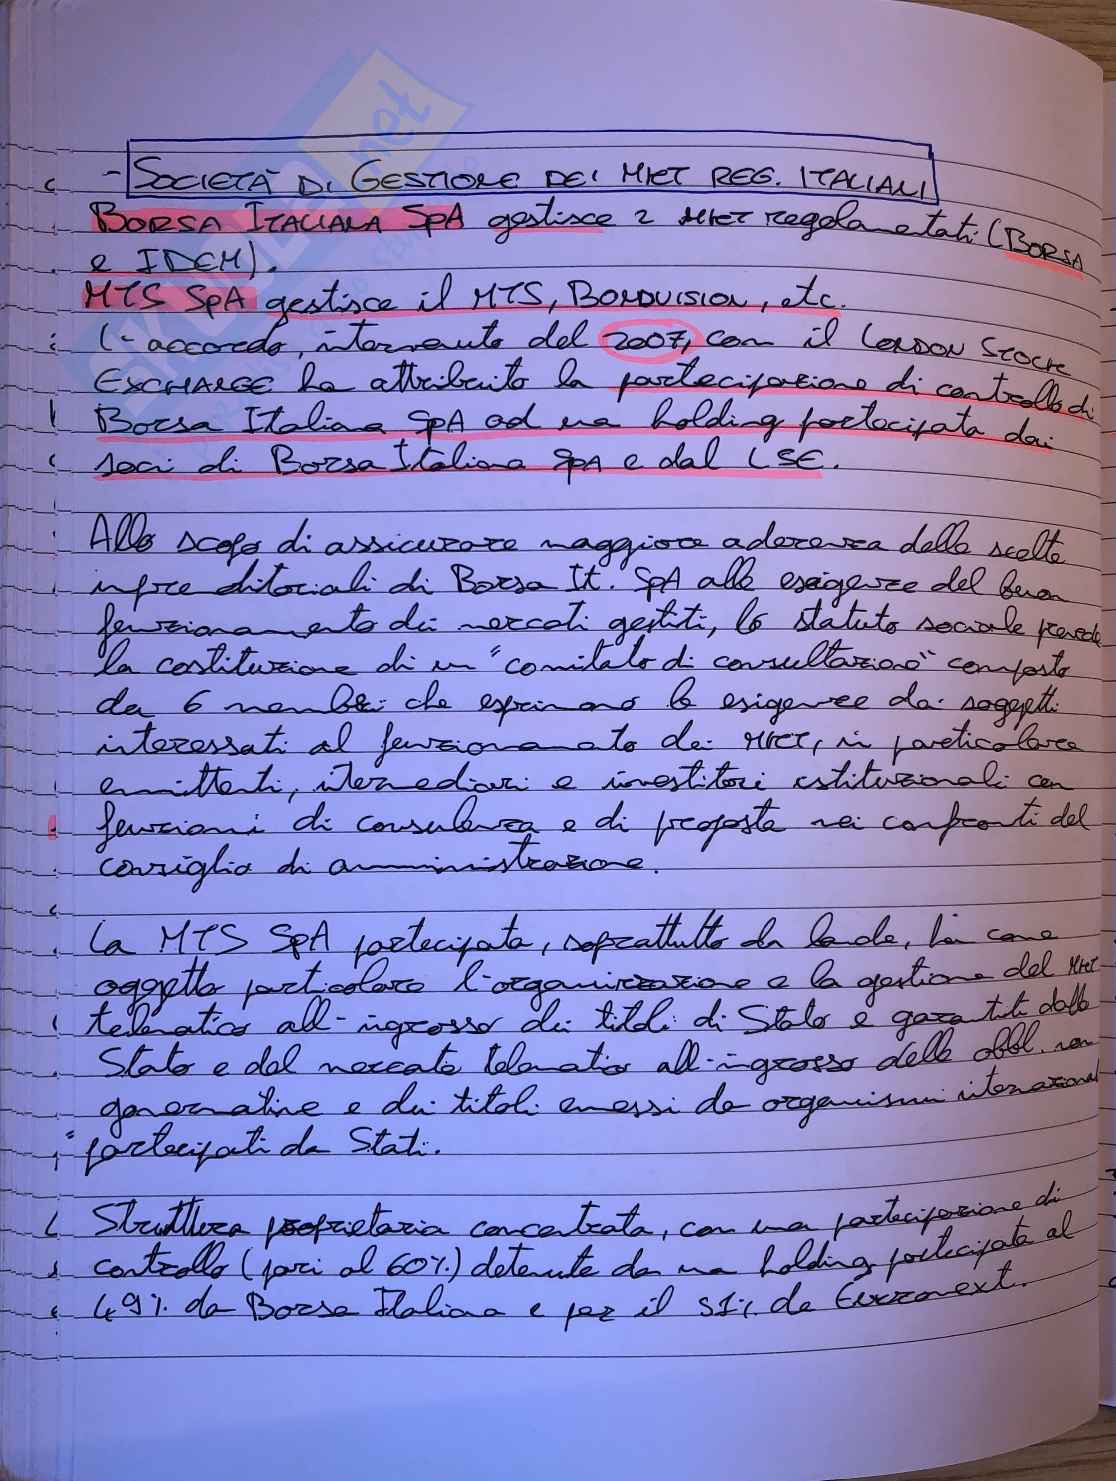 - SOCIETÀ DI GESTIONE DEI MKT REG. ITALIANI
BORSA ITALIANA SpA gestisce 2 MKT regolamentati (BORSA
e IDEM).
MTS SpA gestisce il MTS, BONDVISION, etc.
L'accordo, intervenuto del 2007, con il LONDON STOCK
EXCHANGE ha attribuito la partecipazione di controllo di
Borsa Italiana SpA ad una holding partecipata dai
soci di Borsa Italiana SpA e dal LSE.
Allo scopo di assicurare maggiore aderenza delle scelte
imprenditoriali di Borsa It. SpA alle esigenze del buon
funzionamento dei mercati gestiti, lo statuto sociale prevede
la costituzione di un "comitato di consultazione" composto
da 6 membri che esprimono le esigenze dei soggetti
interessati al funzionamento dei MKT, in particolare
emittenti, intermediari e investitori istituzionali con
funzioni di consulenza e di proposta nei confronti del
consiglio di amministrazione.
La MTS SpA partecipata, soprattutto da banche, ha come
oggetto particolare l'organizzazione e la gestione del MKT
telematico all'ingrosso dei titoli di Stato e garantiti dallo
Stato e del mercato telematico all'ingrosso delle obbl. non
governative e dei titoli emessi da organismi internazionali
partecipati da Stati.
Struttura proprietaria concentrata, con una partecipazione di
controllo (pari al 60%) detenuta da una holding partecipata al
49% da Borsa Italiana e per il 51% da Euronext.
skuola.net